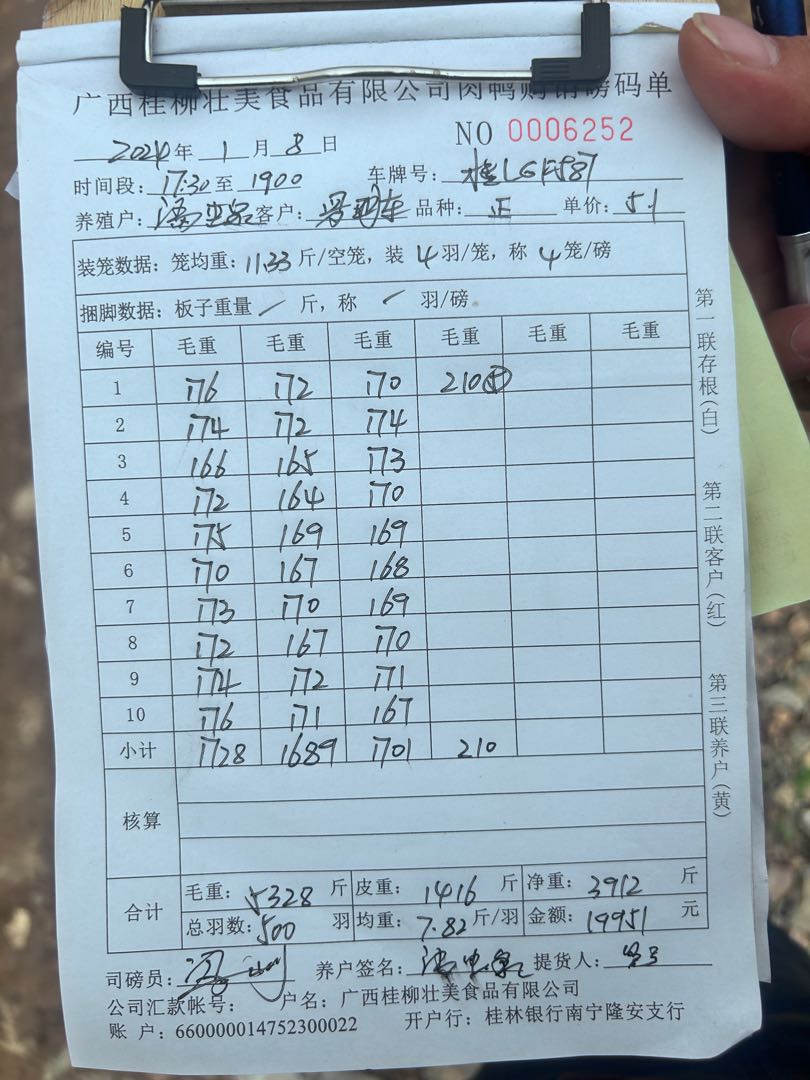 广西桂柳壮美食品有限公司肉鸭购销磅码单
NO 0006252
2024年 1 月 8 日
时间段: 17:30 至 1900 车牌号: 桂LGF587
养殖户: 客户: 品种: 正 单价: 5.1
装笼数据: 笼均重: 11.33 斤/空笼, 装 4 羽/笼, 称 4 笼/磅
捆脚数据: 板子重量 / 斤, 称 / 羽/磅
编号 毛重 毛重 毛重 毛重 毛重 毛重
1 176 172 170 210⑤
2 174 172 174
3 166 165 173
4 172 164 170
5 175 169 169
6 170 167 168
7 173 170 169
8 172 167 170
9 174 172 171
10 176 171 167
小计 1728 1689 1701 210
核算
合计 毛重: 5328 斤 皮重: 1416 斤 净重: 3912 斤
总羽数: 500 羽 均重: 7.82 斤/羽 金额: 19951 元
司磅员: 养户签名: 提货人:
公司汇款帐号: 户名: 广西桂柳壮美食品有限公司
账 户: 660000014752300022 开户行: 桂林银行南宁隆安支行
第一联存根(白)
第二联客户(红)
第三联养户(黄)